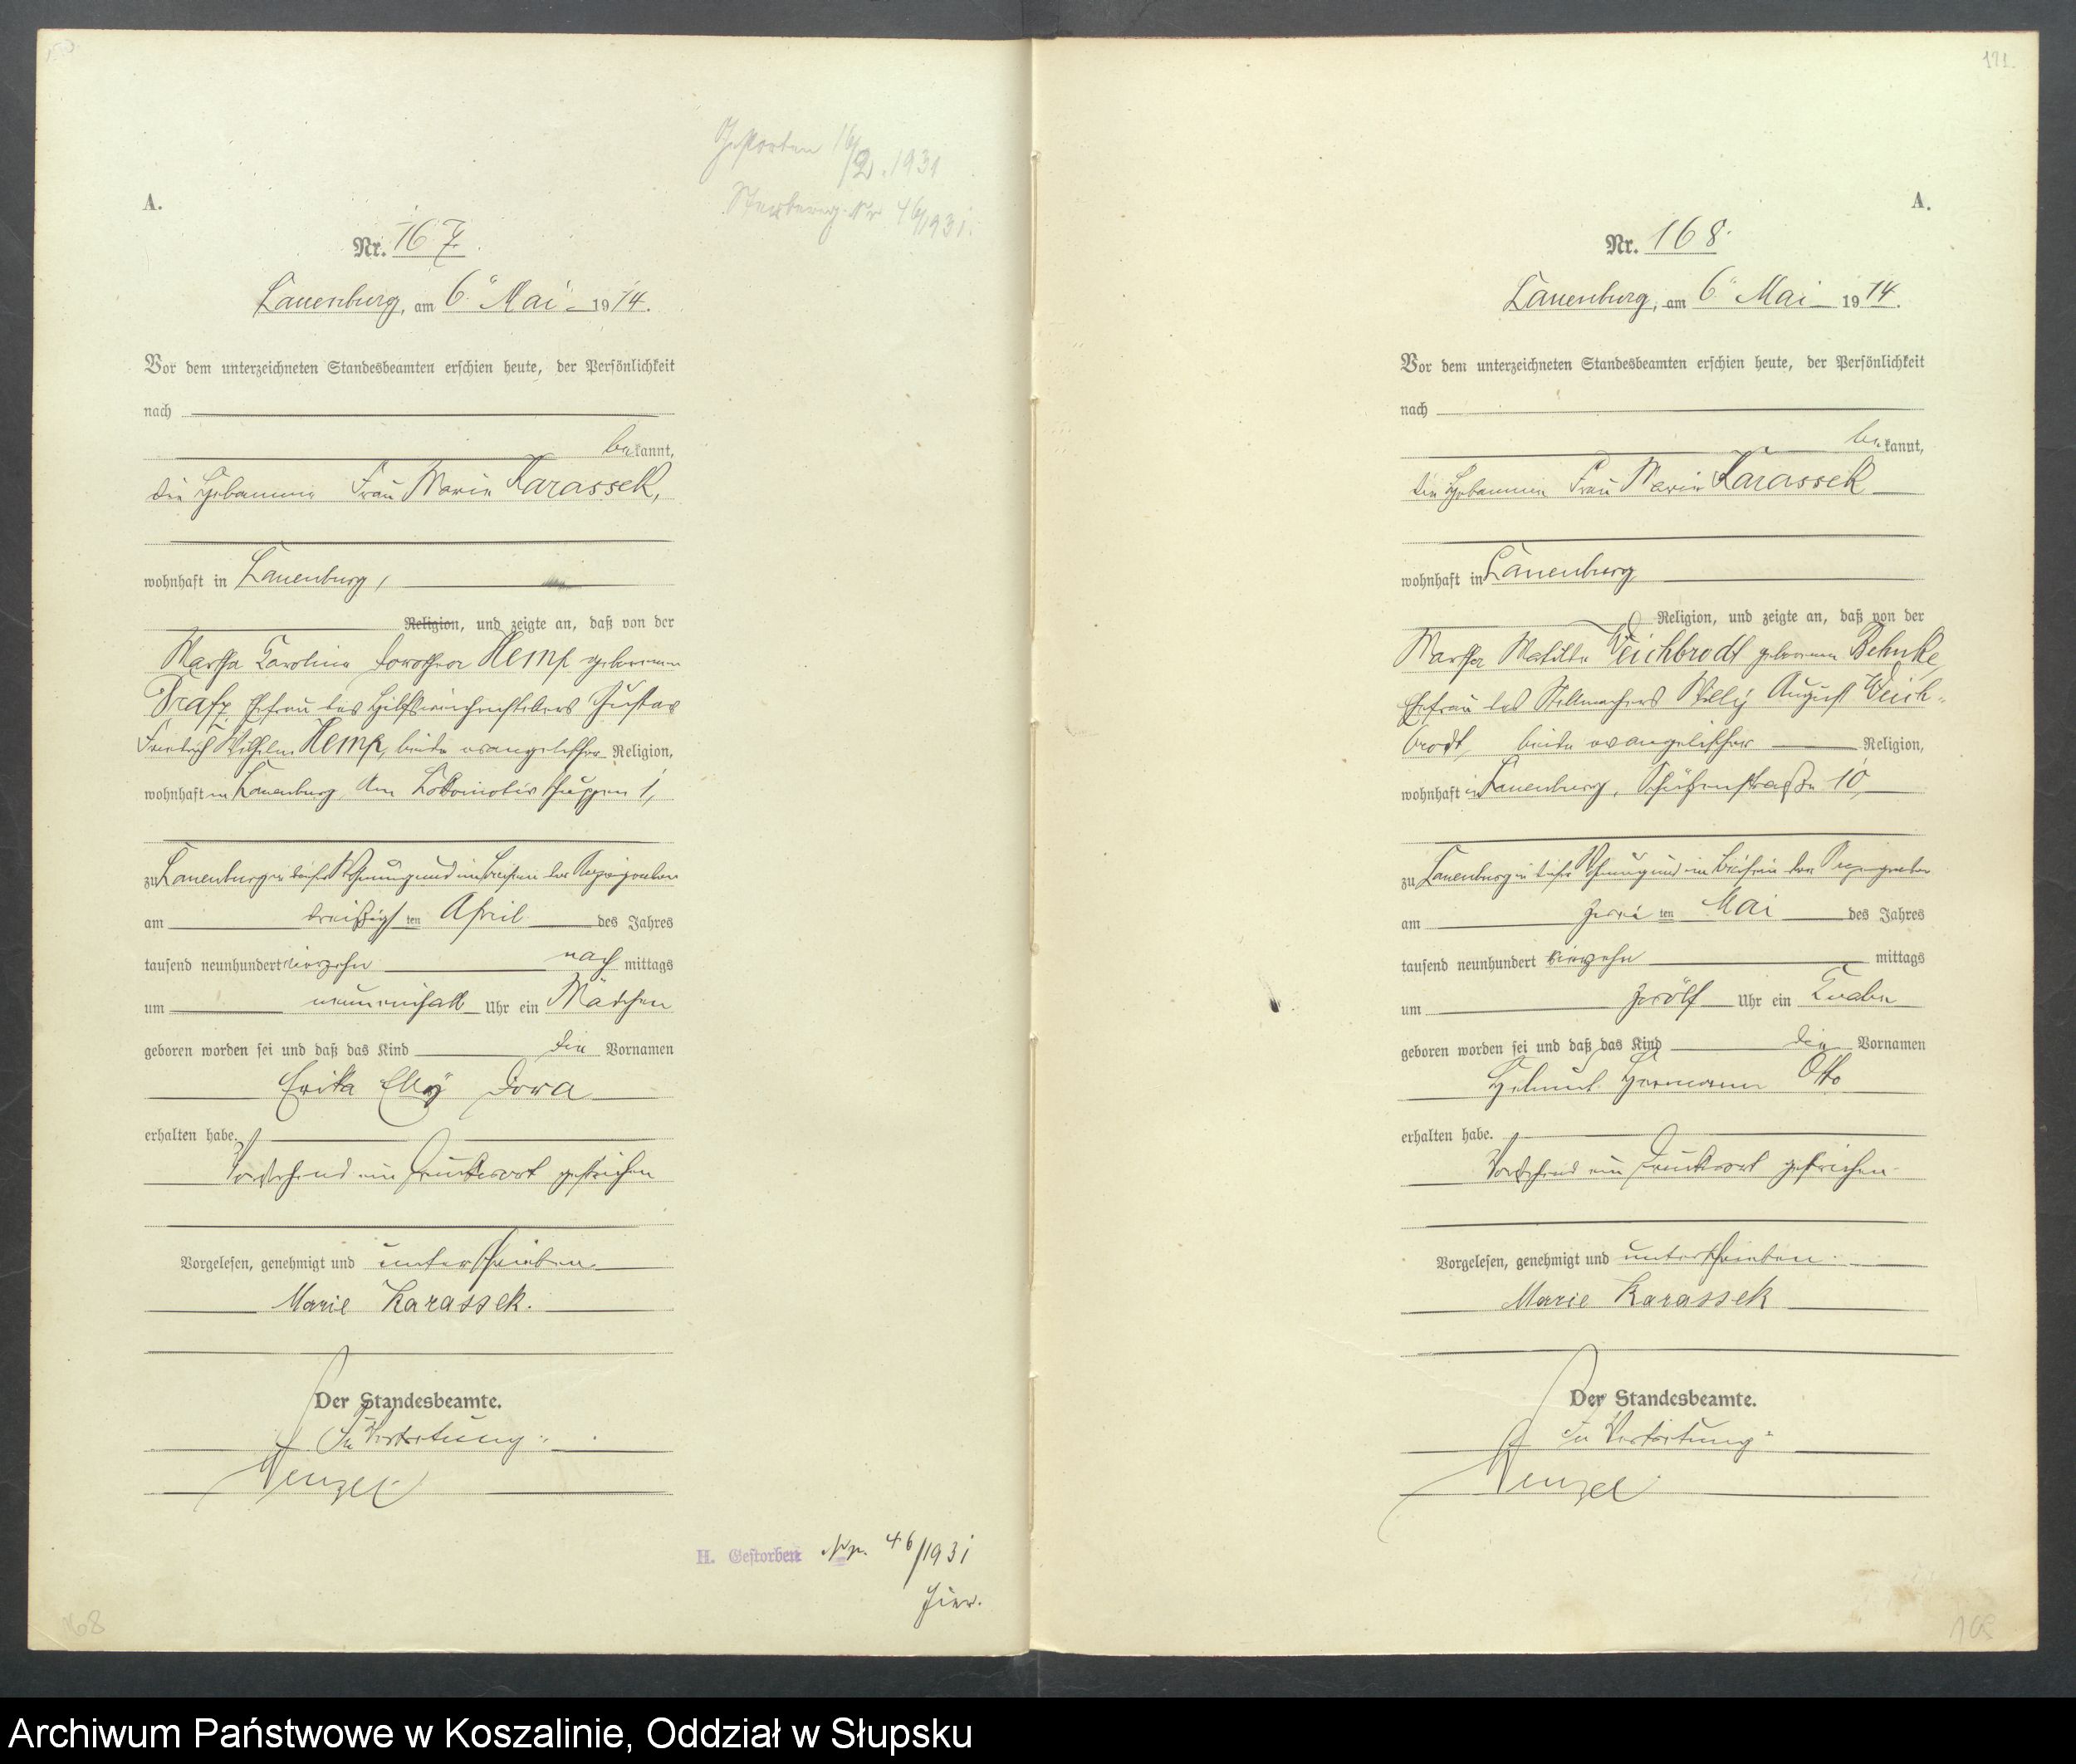 A.
Gestorben 16/2.1931
Sterbereg. Nr 46/1931.
Nr. 167.
Lauenburg, am 6ten Mai 1914.
Vor dem unterzeichneten Standesbeamten erschien heute, der Persönlichkeit
nach
bekannt,
die Hebamme Frau Marie Karassek,
wohnhaft in Lauenburg,
Religion, und zeigte an, daß von der
Martha Karoline Dorothea Hemp geborenen
Ehefrau des Gustav
Friedrich Wilhelm Hemp, beide evangelischer Religion,
wohnhaft in Lauenburg, Am Lokomotivschuppen 1,
zu Lauenburg in dieser Wohnung und im Beisein der Anzeigenden
am dreißigsten April des Jahres
tausend neunhundert vierzehn nachmittags
um neuneinhalb Uhr ein Mädchen
geboren worden sei und daß das Kind die Vornamen
Erika Elly Dora
erhalten habe.
Vorstehend ein Druckwort gestrichen
Vorgelesen, genehmigt und unterschrieben
Marie Karassek.
Der Standesbeamte.
In Vertretung:
Wenzel
H. Gestorben Nr. 46/1931
hier.
68
171
A.
Nr. 168.
Lauenburg, am 6ten Mai 1914.
Vor dem unterzeichneten Standesbeamten erschien heute, der Persönlichkeit
nach
bekannt,
die Hebamme Frau Marie Karassek
wohnhaft in Lauenburg
Religion, und zeigte an, daß von der
Martha Matilde Weichbrodt geborenen Behnke,
Ehefrau des Stellmachers Willy August Weich-
brodt, beide evangelischer Religion,
wohnhaft in Lauenburg, Schützenstraße 10,
zu Lauenburg in dieser Wohnung und im Beisein der Anzeigenden
am zweiten Mai des Jahres
tausend neunhundert vierzehn mittags
um zwölf Uhr ein Knabe
geboren worden sei und daß das Kind die Vornamen
Helmut Hermann Otto
erhalten habe.
Vorstehend ein Druckwort gestrichen
Vorgelesen, genehmigt und unterschrieben.
Marie Karassek
Der Standesbeamte.
In Vertretung:
Wenzel
Archiwum Państwowe w Koszalinie, Oddział w Słupsku